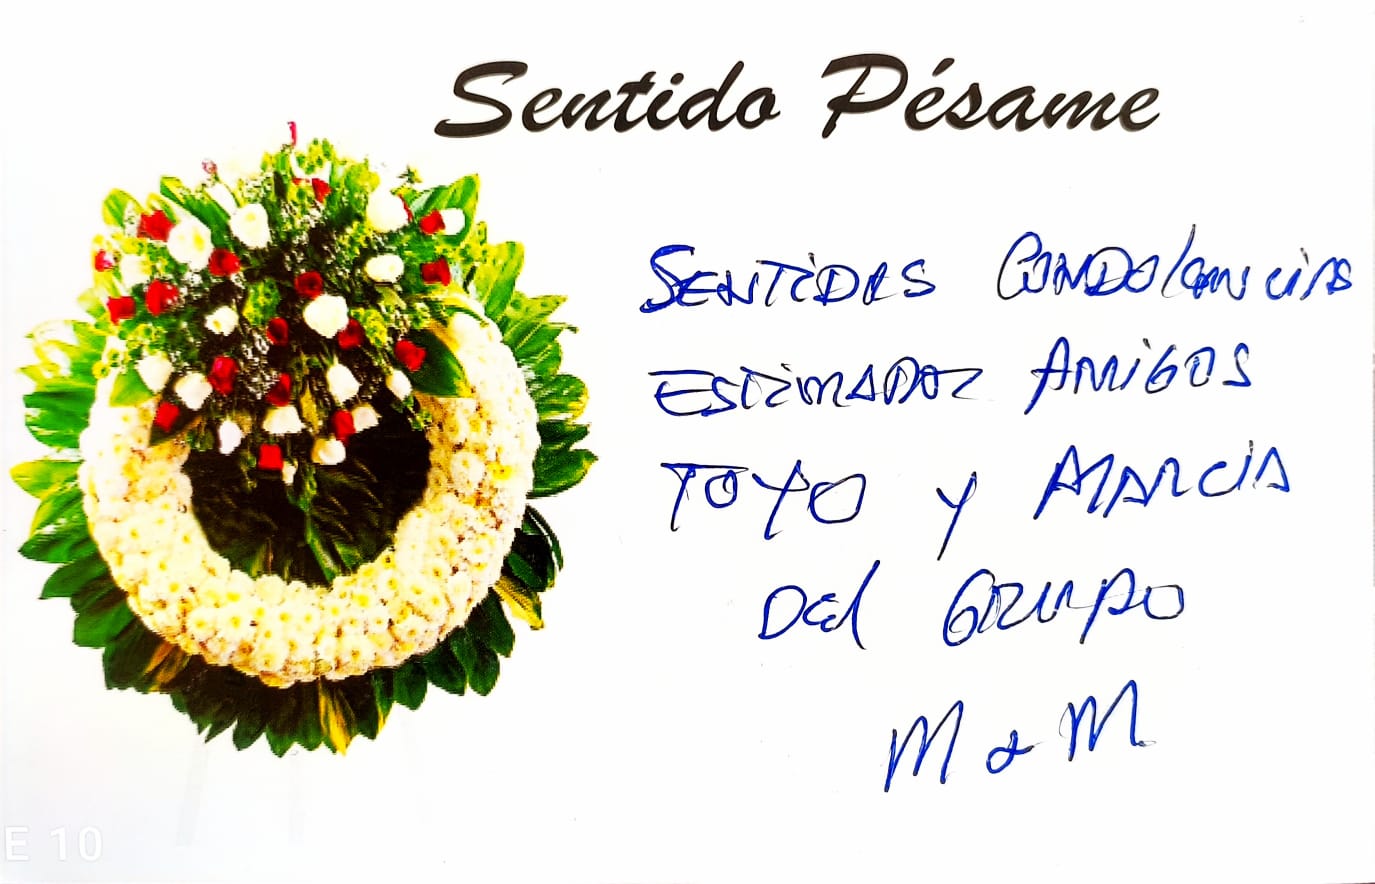 Sentido Pésame
SENTIDAS CONDOlENCIAS
ESTIMADOS AMIGOS
TOYO Y MARCIA
DEl GRUPO
M & M.
E 10